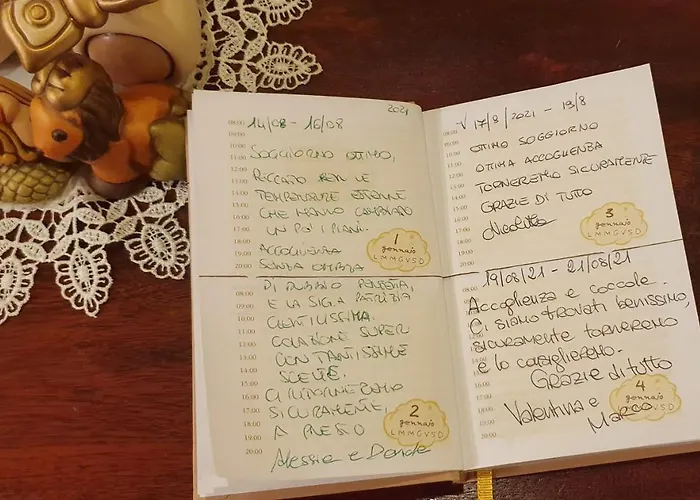 2021
14/08 - 16/08
SOGGIORNO OTTIMO,
PECCATO PER LE
TEMPERATURE ESTERNE
CHE HANNO CAMBIATO
UN PO' I PIANI.
ACCOGLIENZA
SENZA OMBRA
DI DUBBIO PERFETTA,
E LA SIG.RA PATRIZIA
GENTILISSIMA.
COLAZIONE SUPER
CON TANTISSIME
SCELTE.
CI RITORNEREMO
SICURAMENTE,
A PRESTO
Alessia e Davide
08:00
09:00
10:00
11:00
12:00
13:00
14:00
15:00
16:00
17:00
18:00
19:00
20:00
1
gennaio
L M M G V S D
08:00
09:00
10:00
11:00
12:00
13:00
14:00
15:00
16:00
17:00
18:00
19:00
20:00
2
gennaio
L M M G V S D
17/8/2021 - 19/8
OTTIMO SOGGIORNO
OTTIMA ACCOGLIENZA
TORNEREMO SICURAMENTE
GRAZIE DI TUTTO
3
gennaio
L M M G V S D
19/08/21 - 21/08/21
Accoglienza e coccole.
Ci siamo trovati benissimo,
sicuramente torneremo
e lo consiglieremo.
Grazie di tutto
Valentina e
Marco
4
gennaio
L M M G V S D